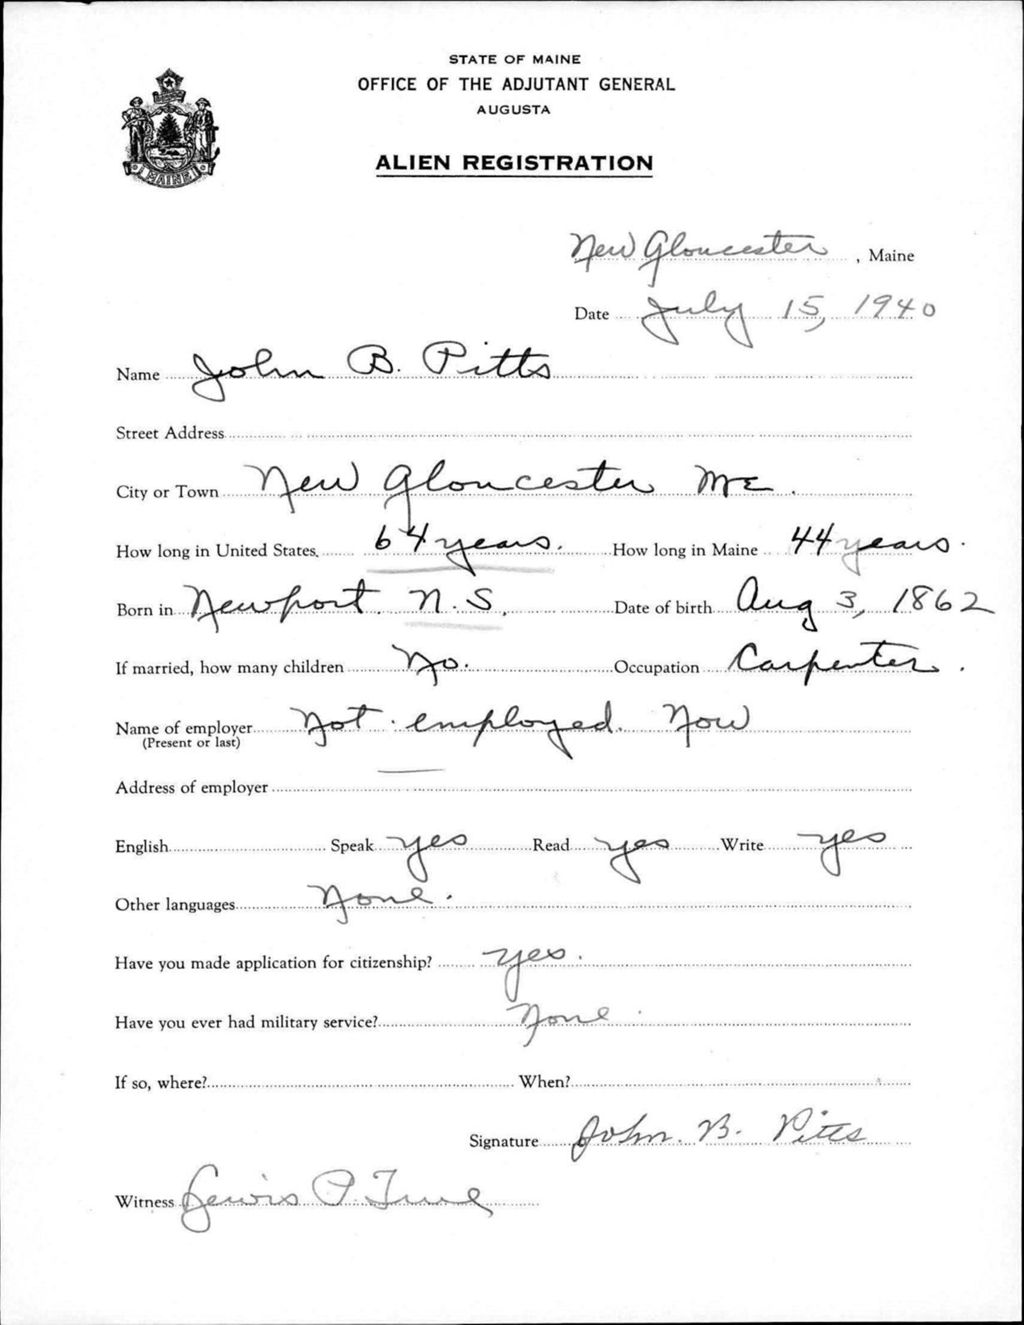 STATE OF MAINE
OFFICE OF THE ADJUTANT GENERAL
AUGUSTA
ALIEN REGISTRATION
MAINE
New Gloucester, Maine
Date July 15, 1940
Name John B. Pitts
Street Address
City or Town New Gloucester Me.
How long in United States. 64 years. How long in Maine 44 years.
Born in Newport. N.S. Date of birth Aug 3, 1862
If married, how many children No. Occupation Carpenter.
Name of employer Not employed. Now
(Present or last)
Address of employer
English Speak yes Read yes Write yes
Other languages None.
Have you made application for citizenship? yes.
Have you ever had military service? None.
If so, where? When?
Signature John. B. Pitts
Witness Lewis P. True